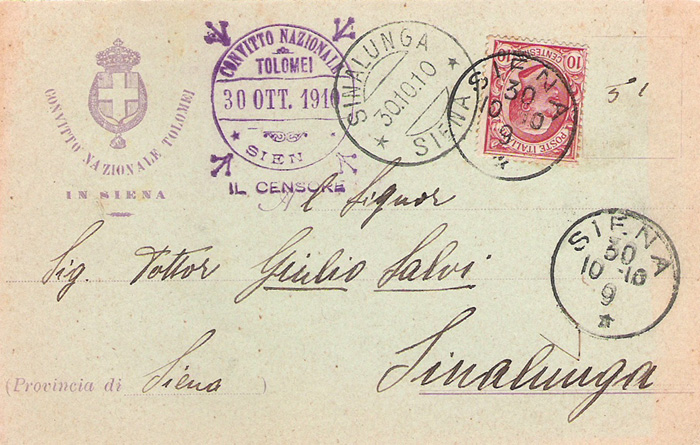 CONVITTO NAZIONALE TOLOMEI
IN SIENA
CONVITTO NAZIONALE
TOLOMEI
30 OTT. 1910
SIEN
IL CENSORE
SINALUNGA
30.10.10
SIENA
10 CENTES
POSTE ITALI
SIENA
30
10 10
9
Al Signor
Sig. Dottor Giulio Salvi
SIENA
30
10-10
9
Sinalunga
(Provincia di Siena)